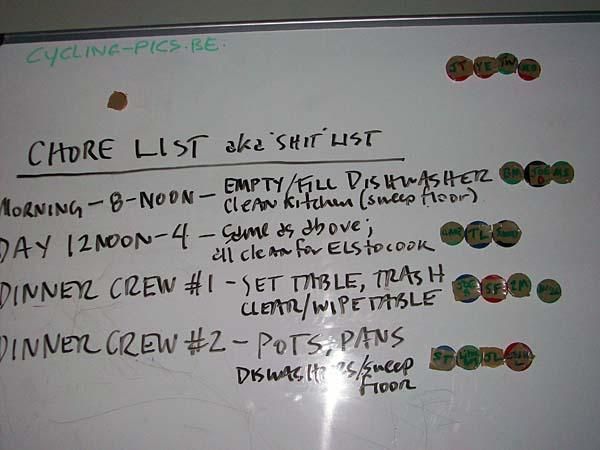 CYCLING-PICS.BE.
JT YE TW
CHORE LIST aka "SHIT" LIST
MORNING - 8-NOON - EMPTY/FILL DISHWASHER
Clean Kitchen (sweep floor)
BM JOE D MS
DAY 12 NOON-4 - Same as above;
all clean for ELS to cook
TL
DINNER CREW #1 - SET TABLE, TRASH
CLEAR/WIPE TABLE
JOE SF IM
DINNER CREW #2 - POTS, PANS
DISWASHERS/sweep
floor
ST JL